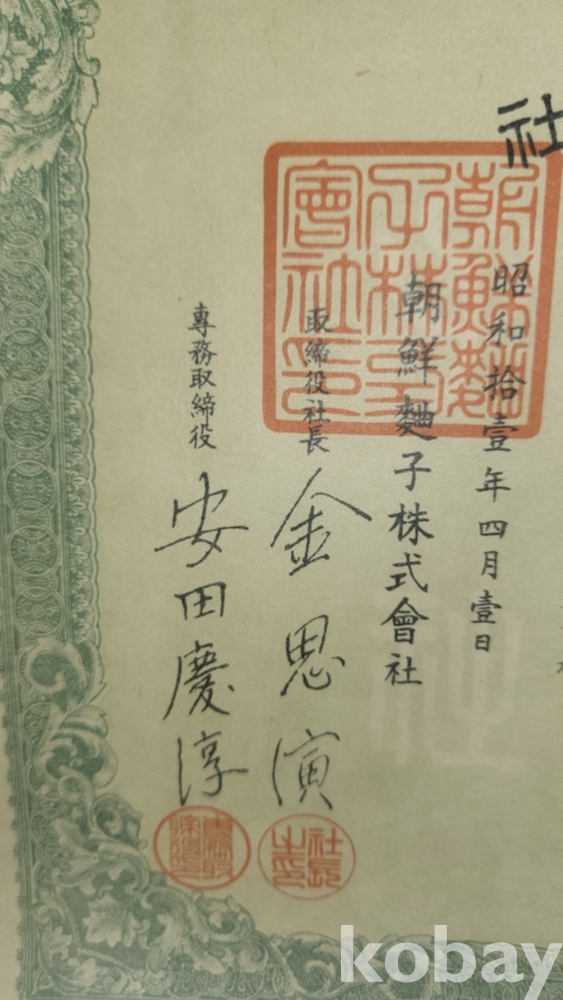 社
昭和拾壹年四月壹日
朝鮮麵子株式會社
取締役社長 金思演
專務取締役 安田慶淳
朝鮮麵
子株式
會社印
社長
之印
kobay